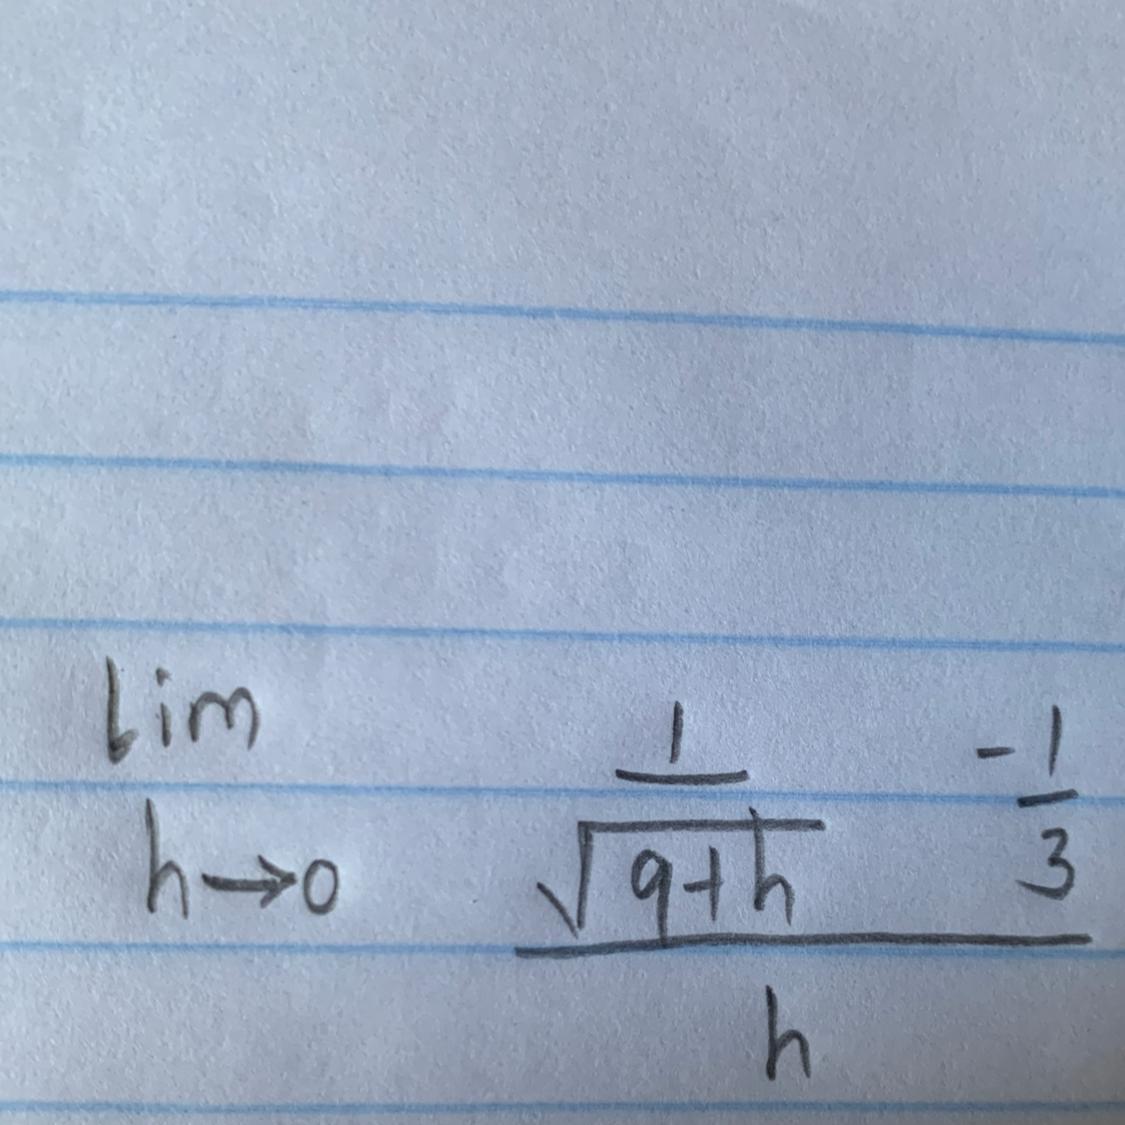 lim h→0
1/√(9+h) - 1/3
h